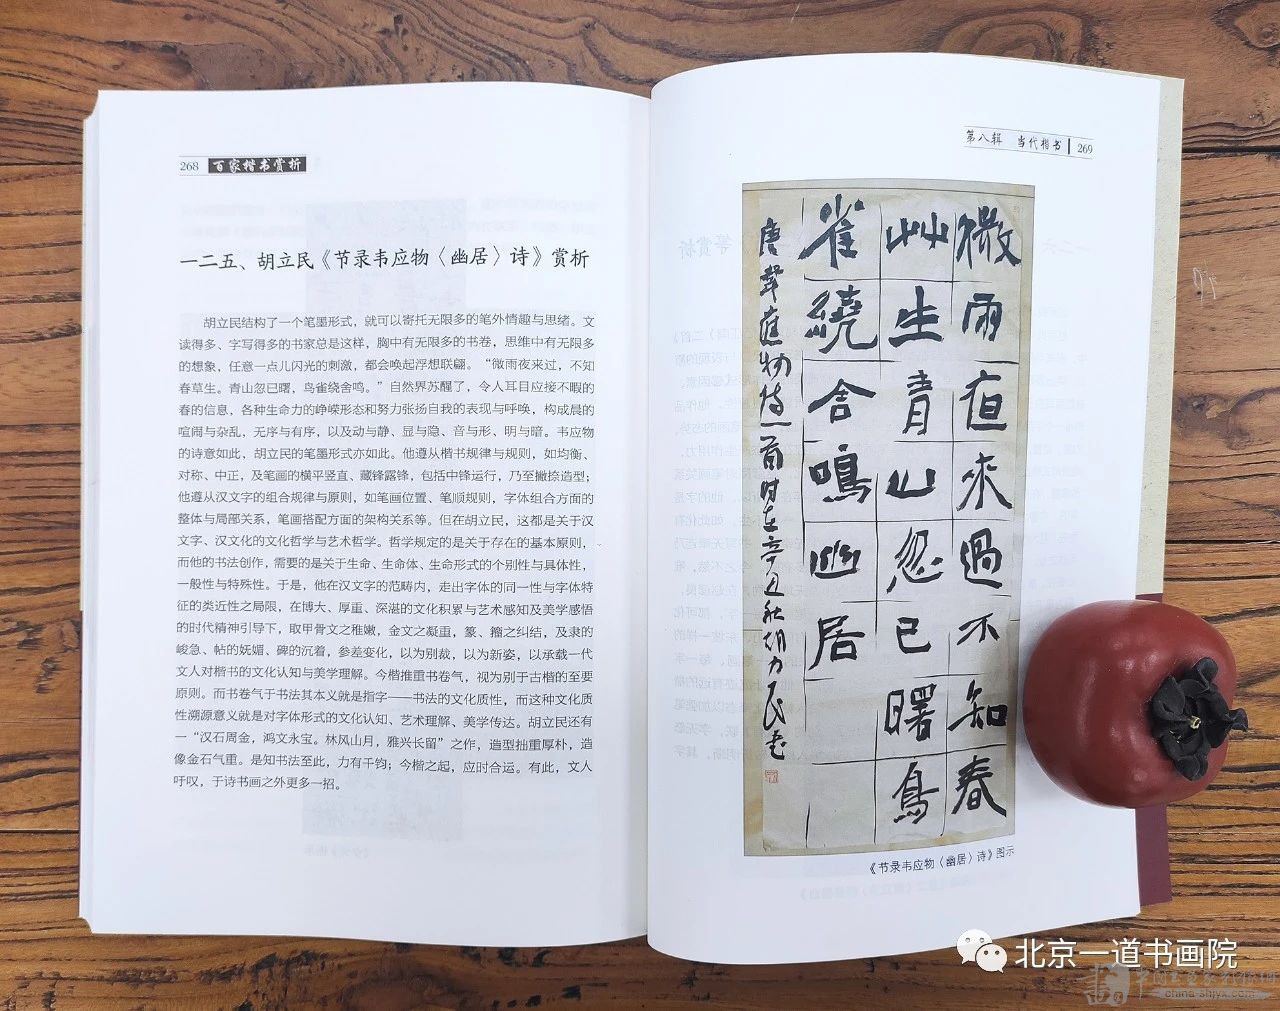 268 百家楷书赏析
一二五、胡立民《节录韦应物〈幽居〉诗》赏析
胡立民结构了一个笔墨形式，就可以寄托无限多的笔外情趣与思绪。文
读得多、字写得多的书家总是这样，胸中有无限多的书卷，思维中有无限多
的想象，任意一点儿闪光的刺激，都会唤起浮想联翩。“微雨夜来过，不知
春草生。青山忽已曙，鸟雀绕舍鸣。”自然界苏醒了，令人耳目应接不暇的
春的信息，各种生命力的峥嵘形态和努力张扬自我的表现与呼唤，构成晨的
喧闹与杂乱，无序与有序，以及动与静、显与隐、音与形、明与暗。韦应物
的诗意如此，胡立民的笔墨形式亦如此。他遵从楷书规律与规则，如均衡、
对称、中正，及笔画的横平竖直、藏锋露锋，包括中锋运行，乃至撇捺造型；
他遵从汉文字的组合规律与原则，如笔画位置、笔顺规则，字体组合方面的
整体与局部关系，笔画搭配方面的架构关系等。但在胡立民，这都是关于汉
文字、汉文化的文化哲学与艺术哲学。哲学规定的是关于存在的基本原则，
而他的书法创作，需要的是关于生命、生命体、生命形式的个别性与具体性，
一般性与特殊性。于是，他在汉文字的范畴内，走出字体的同一性与字体特
征的类近性之局限，在博大、厚重、深湛的文化积累与艺术感知及美学感悟
的时代精神引导下，取甲骨文之稚嫩，金文之凝重，篆、籀之纠结，及隶的
峻急、帖的妩媚、碑的沉着，参差变化，以为别裁，以为新姿，以承载一代
文人对楷书的文化认知与美学理解。今楷推重书卷气，视为别于古楷的至要
原则。而书卷气于书法其本义就是指字——书法的文化质性，而这种文化质
性溯源意义就是对字体形式的文化认知、艺术理解、美学传达。胡立民还有
一“汉石周金，鸿文永宝。林风山月，雅兴长留”之作，造型拙重厚朴，造
像金石气重。是知书法至此，力有千钧；今楷之起，应时合运。有此，文人
吁叹，于诗书画之外更多一招。
第八辑 当代楷书 269
微雨夜來過不知春
艸生青山忽已曙鳥
雀繞舍鳴幽居
唐韋應物詩一首时在辛丑秋胡力民書
《节录韦应物〈幽居〉诗》图示
北京一道书画院
china-shjyx.com